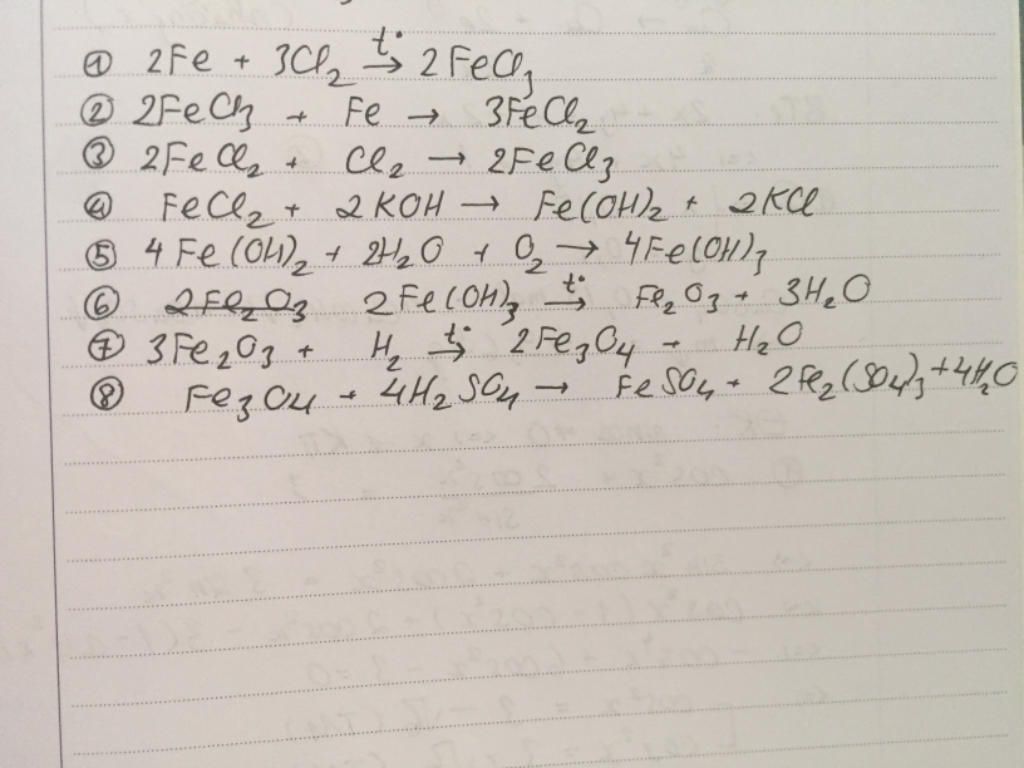 ① 2Fe + 3Cl₂ →t° 2FeCl₃
② 2FeCl₃ + Fe → 3FeCl₂
③ 2FeCl₂ + Cl₂ → 2FeCl₃
④ FeCl₂ + 2KOH → Fe(OH)₂ + 2KCl
⑤ 4Fe(OH)₂ + 2H₂O + O₂ → 4Fe(OH)₃
⑥ 2Fe₂O₃ 2Fe(OH)₃ →t° Fe₂O₃ + 3H₂O
⑦ 3Fe₂O₃ + H₂ →t° 2Fe₃O₄ + H₂O
⑧ Fe₃O₄ + 4H₂SO₄ → FeSO₄ + 2Fe₂(SO₄)₃ + 4H₂O